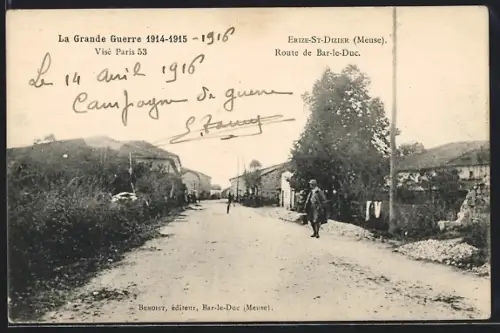 La Grande Guerre 1914-1915 - 1916
Visé Paris 53
Erize-St-Dizier (Meuse).
Route de Bar-le-Duc.
Le 14 avril 1916
Campagne de guerre
Benoist, éditeur, Bar-le-Duc (Meuse).